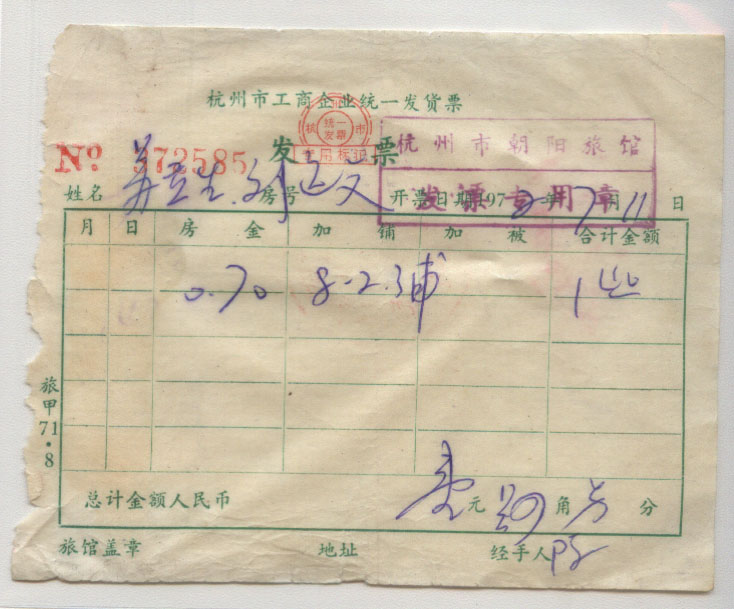 杭州市工商企业统一发货票
杭 统一发票 市
专用标记
No 373585 发 票
杭州市朝阳旅馆
发票专用章
姓名 房号 开票日期197 2 年 7 月 11 日
月 日 房金 加铺 加被 合计金额
0.70 8-2.3铺 1 40
旅甲71·8
总计金额人民币 壹 元 肆 角 分
旅馆盖章 地址 经手人